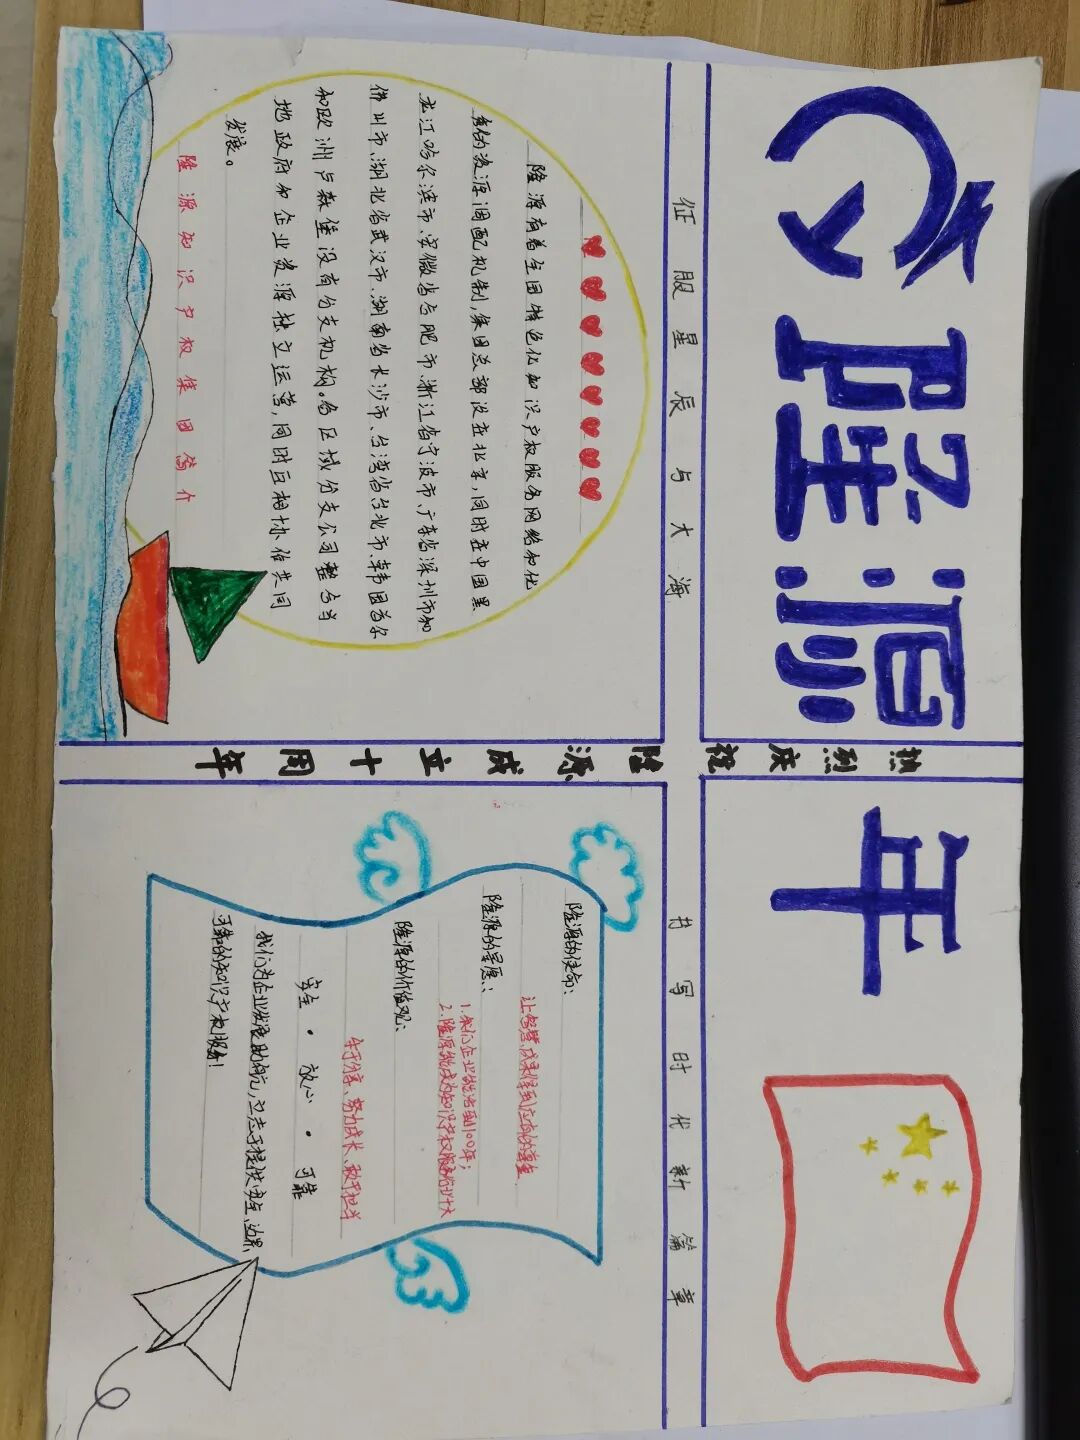 隆源
年
征服星辰与大海
书写时代新篇章
热烈庆祝隆源成立十周年
隆源有着全国特色化知识产权服务网络和优
良的资源调配机制,集团总部设在北京,同时在中国黑
龙江哈尔滨市、安徽省合肥市、浙江省宁波市、广东省深圳市和
佛山市、湖北省武汉市、湖南省长沙市、台湾省台北市、韩国首尔
和欧洲卢森堡设有分支机构。各区域分支公司整合当
地政府和企业资源独立运营,同时互相协作共同
发展。
隆源知识产权集团简介
隆源的使命:
让智慧成果得到应有的尊重
隆源的愿景:
1.我们企业能活到100年;
2.隆源能成为知识产权服务行业十大
隆源的价值观:
乐于分享、努力成长、敢于担当
安全·放心·可靠
我们为企业发展助航,立志于提供安全、边界、
可靠的知识产权服务!